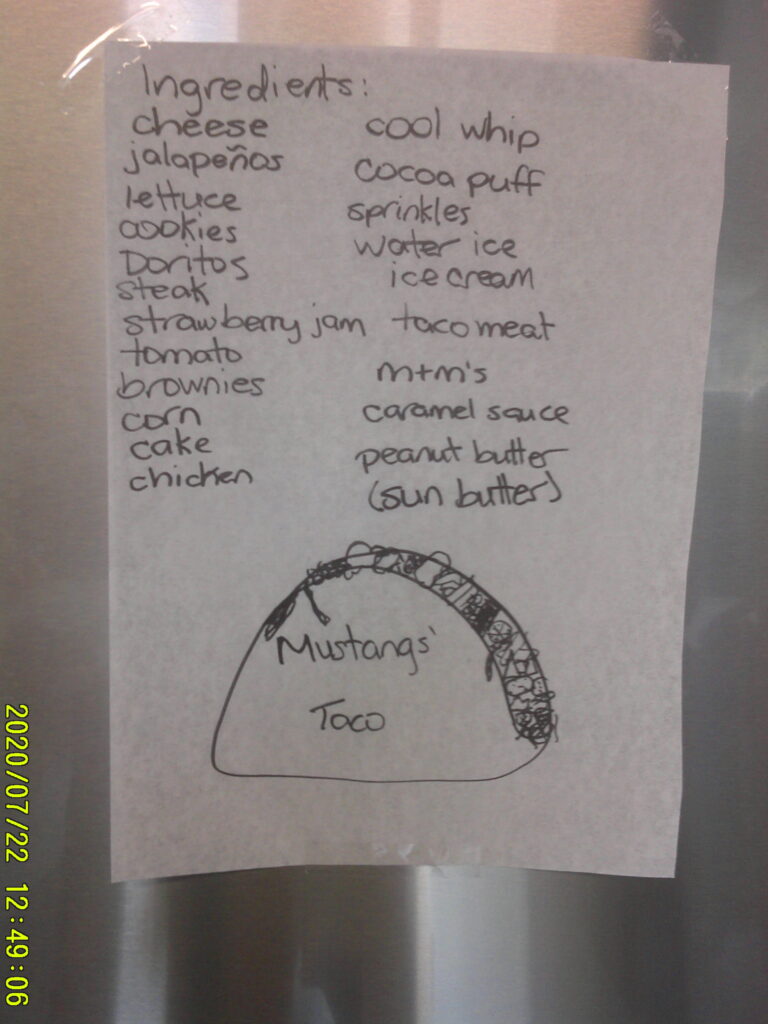 Ingredients:
cheese
jalapeños
lettuce
cookies
Doritos
steak
strawberry jam
tomato
brownies
corn
cake
chicken
cool whip
cocoa puff
sprinkles
water ice
ice cream
taco meat
m+m's
caramel sauce
peanut butter
(sun butter)
Mustangs'
Taco
2020/07/22 12:49:06